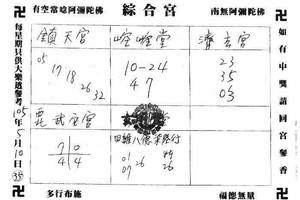 有空常唸阿彌陀佛
綜合宮
南無阿彌陀佛
鎮天宮
05 17 18 26 32
10-24
47
濟玄宮
23
35
03
武聖宮
70
44
四維八德
01
07
26
26
每星期只供大樂透參考
105年5月10日
如有中獎請回宮參香
多行布施
福德無量